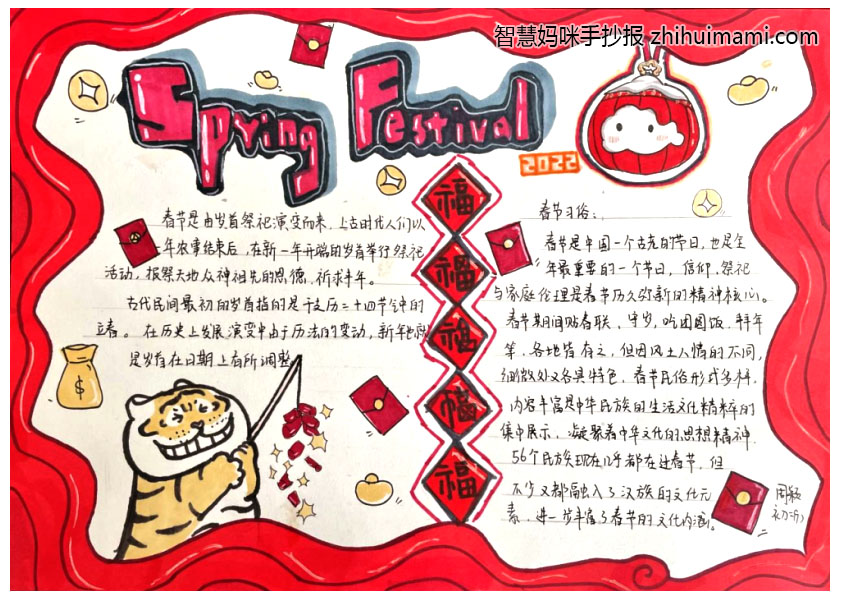 智慧妈咪手抄报 zhihuimami.com
Spring Festival
2022
春节是由岁首祭祀演变而来，上古时代人们以
一年农事结束后，在新一年开端的岁首举行祭祀
活动，报祭天地众神祖先的恩德，祈求丰年。
古代民间最初的岁首指的是干支历二十四节气中的
立春。在历史上发展演变中由于历法的变动，新年也就
是岁首在日期上有所调整
福
福
福
福
福
春节习俗：
春节是中国一个古老的节日，也是全
年最重要的一个节日，信仰，祭祀
与家庭伦理是春节历久弥新的精神核心。
春节期间贴春联，守岁，吃团圆饭，拜年
等，各地皆有之，但因风土人情的不同，
细微处又各具特色，春节民俗形式多样，
内容丰富是中华民族的生活文化精粹的
集中展示，凝聚着中华文化的思想精神．
56个民族现在几乎都在过春节，但
不少又都融入了汉族的文化元
素，进一步丰富了春节的文化内涵。
$